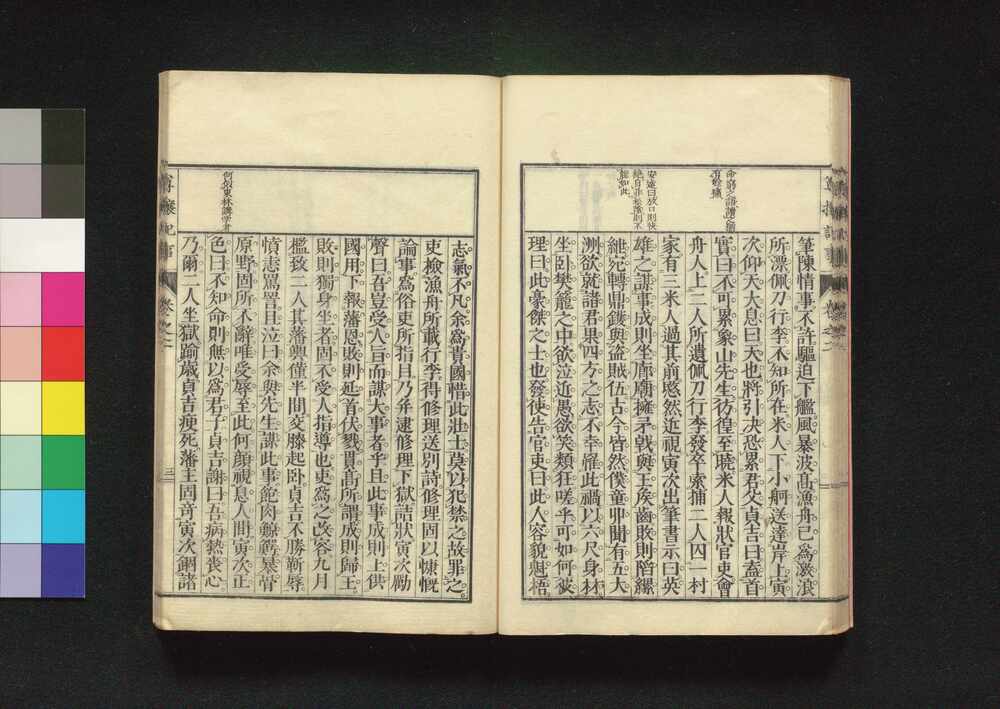 命窮之語讀之猶
有餘痛
安達曰放口則快
絶自非松陰則不
能如此
筆陳情事不許驅迫下艦風暴波高漁舟已爲激浪
所漂佩刀行李不知所在米人下小舸送達岸上寅
次仰天大息曰天也將引決恐累君父貞吉曰盍首
實曰不可累象山先生彷徨至曉米人報狀官吏會
舟人上二人所遺佩刀行李發卒索捕二人囚一村
家有三米人過其前愍然近視寅次出筆書示曰英
雄之謀事成則坐廟廊擁矛戟與王侯齒敗則陷縲
紲宛轉鼎鑊與盜賊伍古今皆然僕童丱聞有五大
洲欲就諸君果四方之志不幸罹此禍以六尺身材
坐臥樊籠之中欲泣近愚欲笑類狂嗟乎可如何彼
理曰此豪傑之士也發使告官吏曰此人容貌魁梧
何似東林講學者
志氣不凡余爲貴國惜此壯士莫以犯禁之故罪之
吏撿漁舟所載行李得修理送別詩修理固以慷慨
論事爲俗吏所指目乃幷逮修理下獄詰狀寅次勵
聲曰吾豈受人言而謀大事者乎且此事成則上供
國用下報藩恩敗則延首伏戮貫高所謂成則歸王
敗則獨身坐者固不受人指導也吏爲之改容九月
檻致二人其藩輿僅半間交膝起臥貞吉不勝靳辱
憤恚罵詈且泣曰余與先生謀此事飽肉鯨鱷暴骨
原野固所不辭唯受辱至此何顏視息人間寅次正
色曰不知命則無以爲君子貞吉謝曰吾病熱喪心
乃爾二人坐獄踰歲貞吉瘐死藩主固奇寅次錮諸
尊攘紀事
卷之二
三